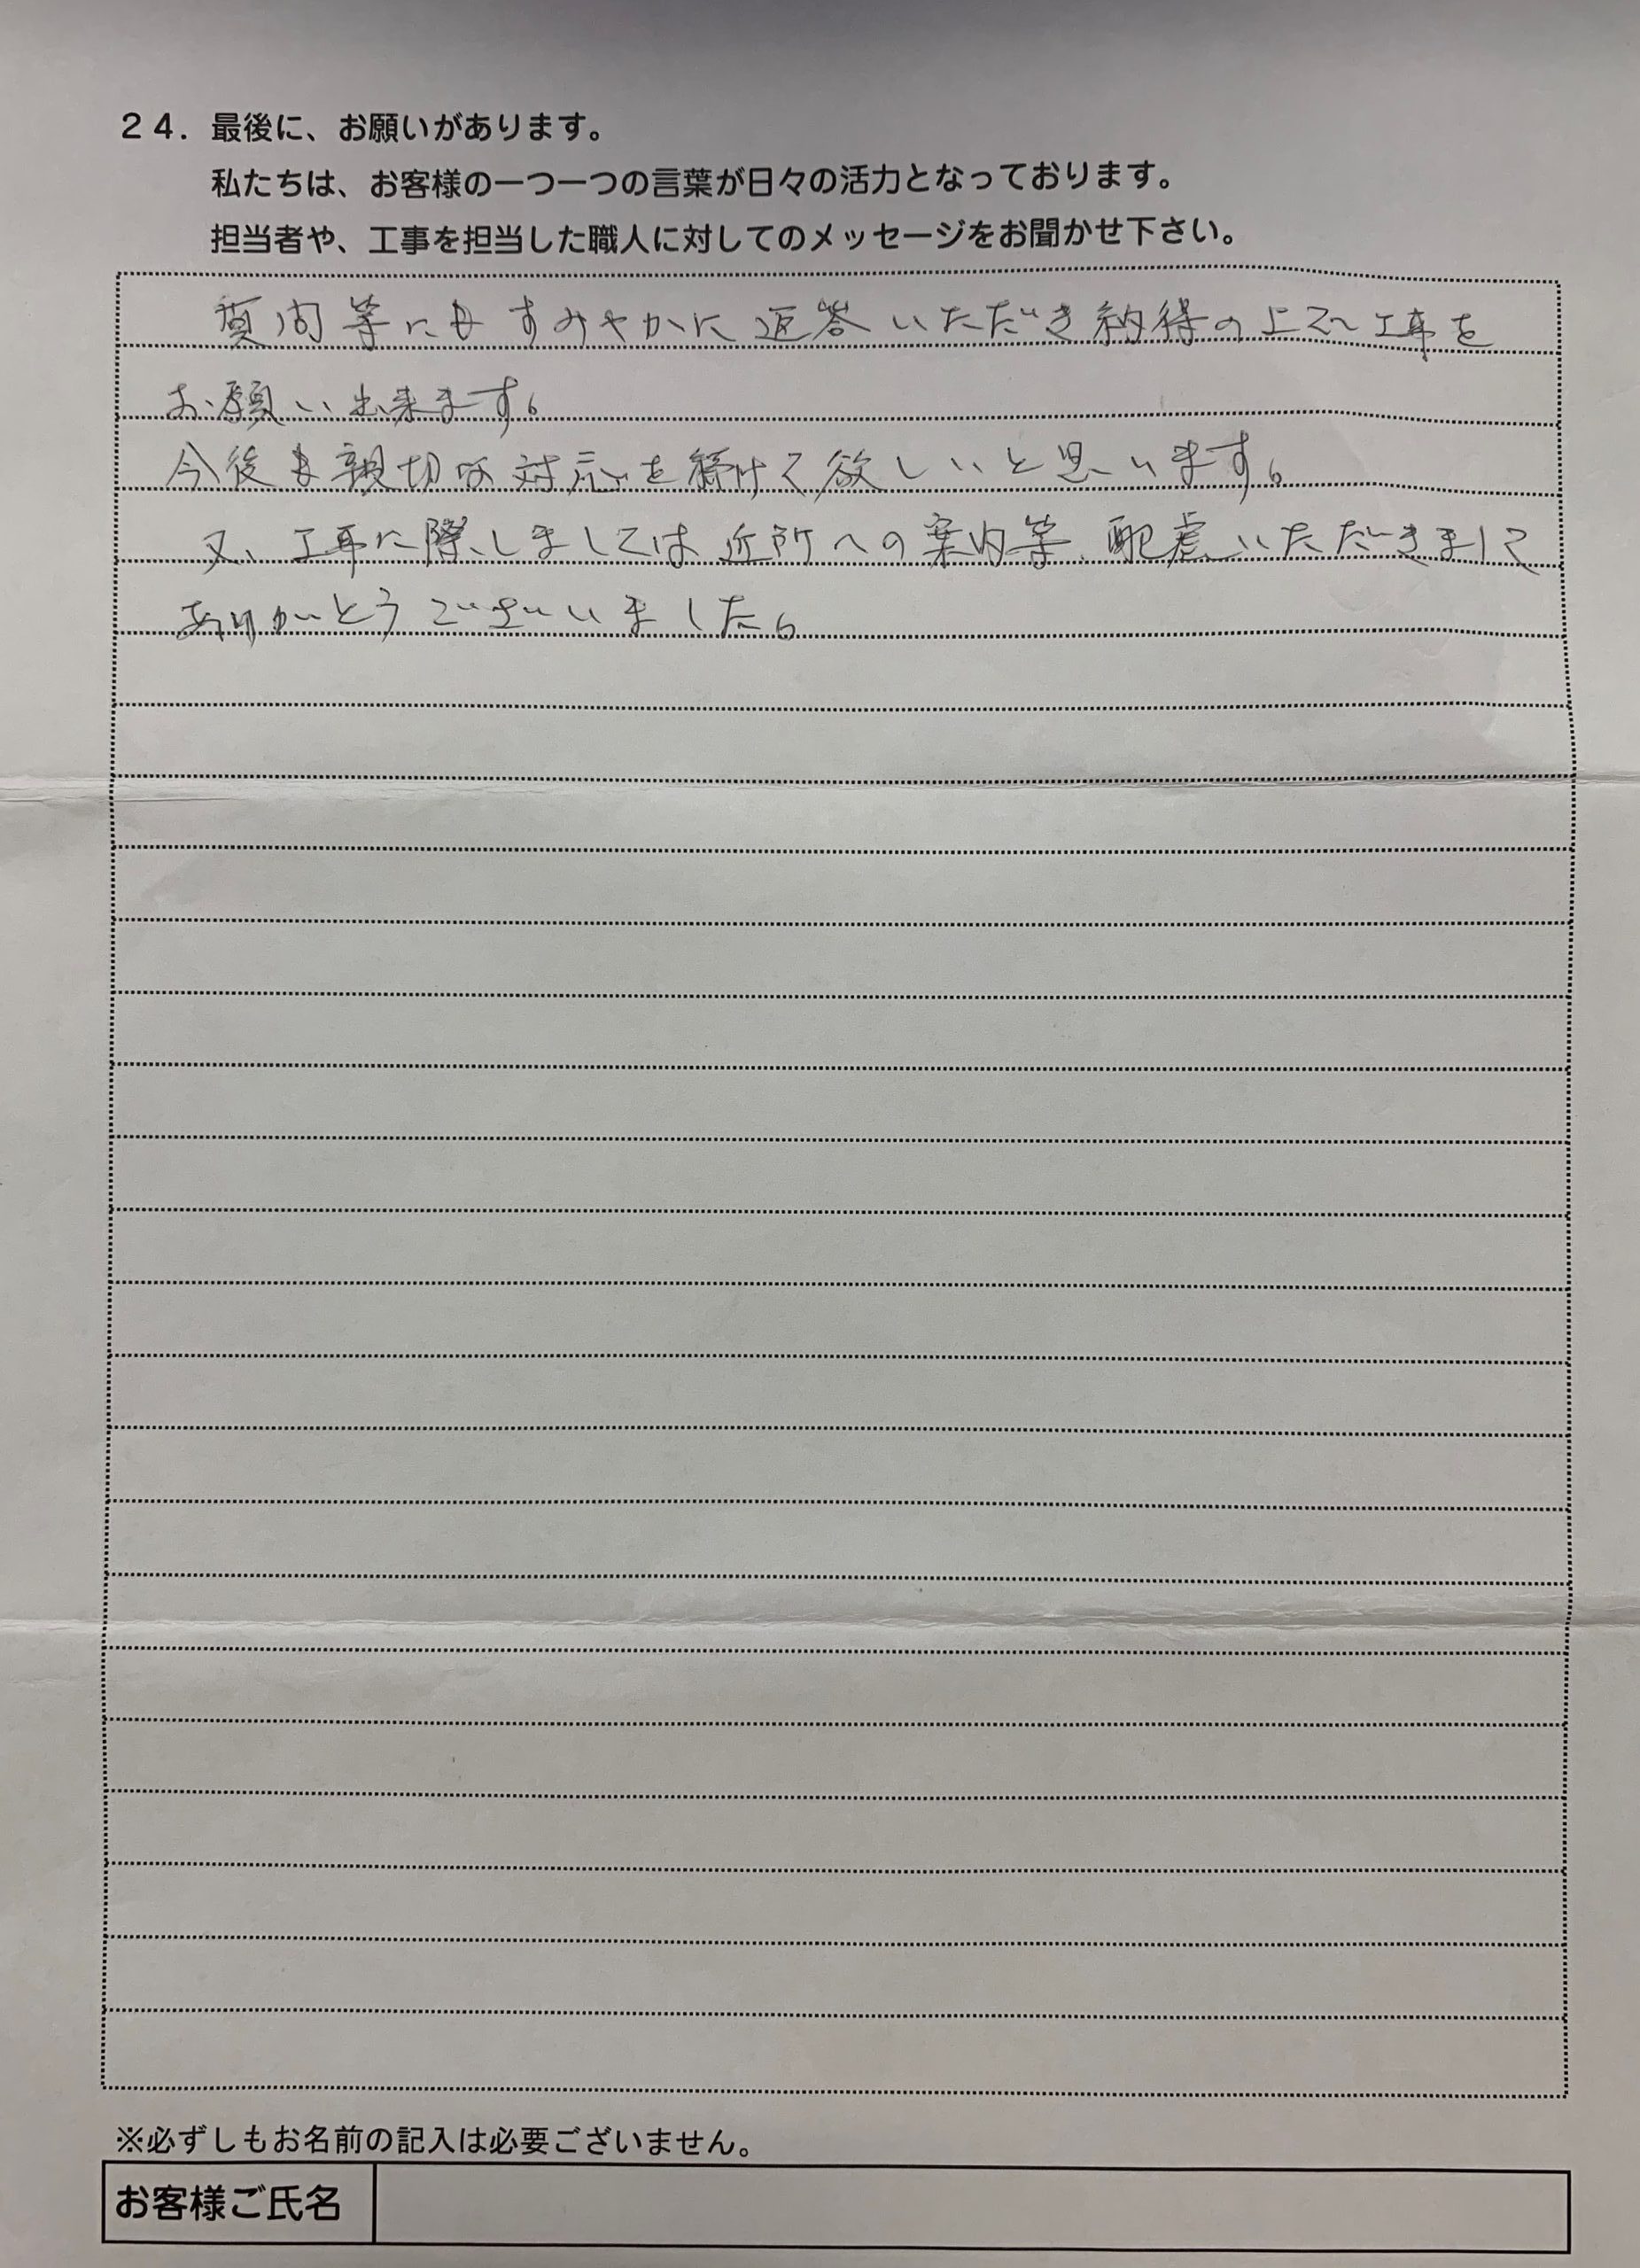 ２４．最後に、お願いがあります。
私たちは、お客様の一つ一つの言葉が日々の活力となっております。
担当者や、工事を担当した職人に対してのメッセージをお聞かせ下さい。
質問等にもすみやかに返答いただき納得の上で工事を
お願い出来ます。
今後も親切な対応を続けて欲しいと思います。
又、工事に際しましては近所への案内等、配慮いただきまして
ありがとうございました。
※必ずしもお名前の記入は必要ございません。
お客様ご氏名